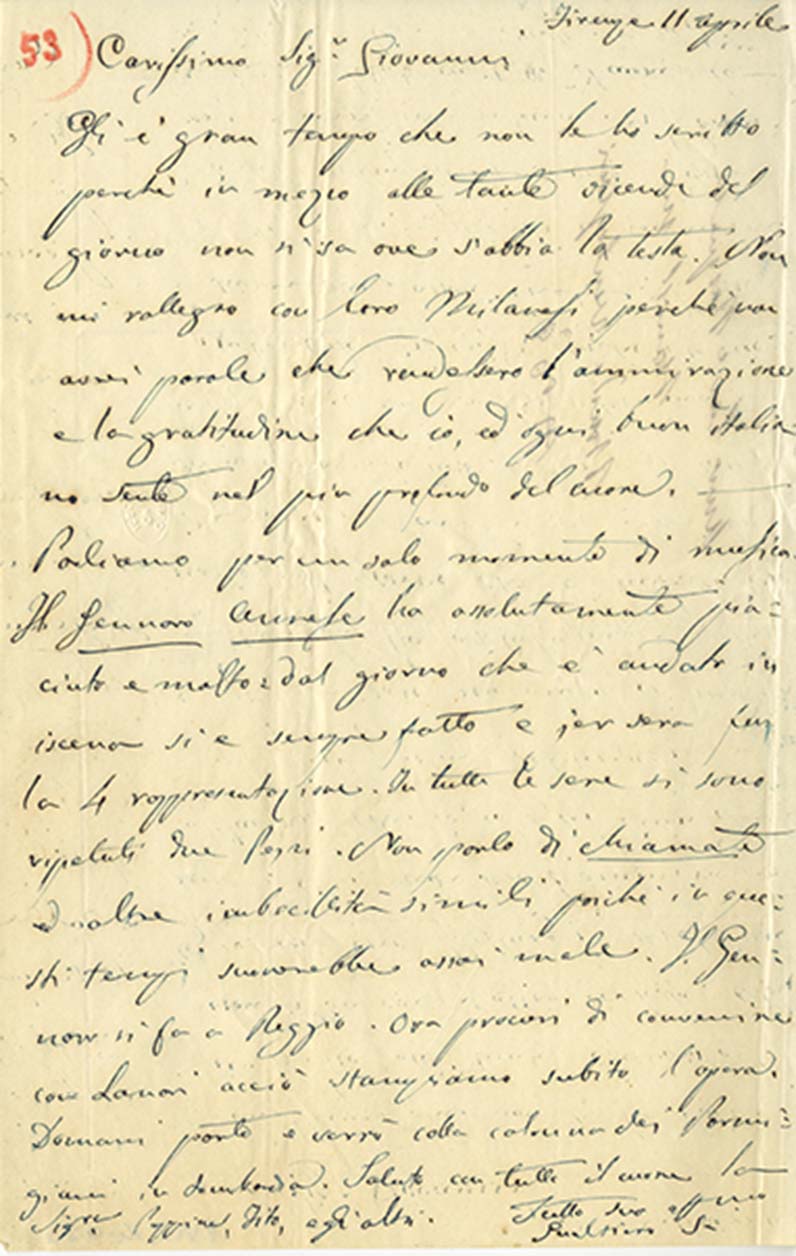 Firenze 11 aprile
53)
Carissimo Sigʳ Giovanni
Gli è gran tempo che non le hò scritto
perchè in mezzo alle tante vicende del
giorno non si sa ove s'abbia la testa. Non
mi rallegro con loro Milanesi perchè non
avrei parole che rendessero l'ammirazione
e la gratitudine che io, ed ogni buon italia-
no sente nel più profondo del cuore. —
Parliamo per un solo momento di musica.
Il Gennaro Annese ha assolutamente pia=
ciuto e molto: dal giorno che è andato in
iscena si è sempre fatto e jer sera fu
la 4 rappresentazione. In tutte le sere si sono
ripetuti due Pezzi. Non parlo di chiamate
ed altre imbecillità simili poichè in que=
sti tempi suonerebbe assai male. Il Gen=
naro si fa a Reggio. Ora procuri di convenire
con Lanari acciò stampiamo subito l'opera.
Domani parto e verrò colla colonna dei Parmi=
giani in Lombardia. Saluto con tutto il cuore la
Sigʳᵃ Peppina, Tito, e gli altri.
Tutto suo affmo
Gualtieri S